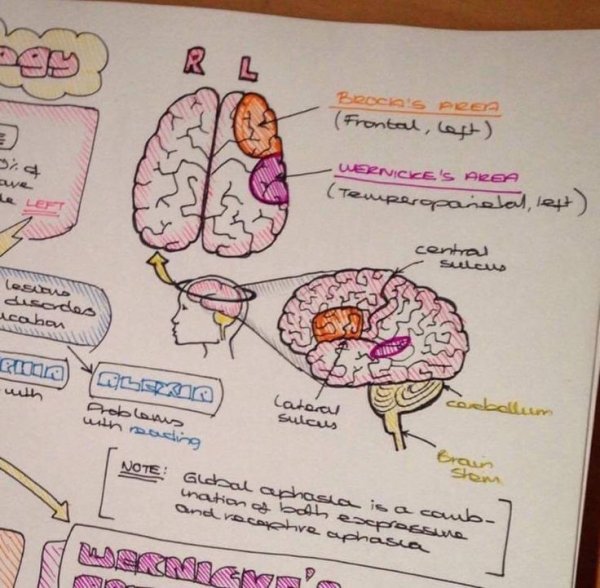 ogy
R L
BROCA'S AREA
(Frontal, left)
WERNICKE'S AREA
(Temperoparietal, left)
% of
ave
LEFT
central
sulcus
lesions
disorders
ication
with
ALEXIA
Problems
with reading
lateral
sulcus
cerebellum
Brain
stem
NOTE: Global aphasia is a comb-
ination of both expressive
and receptive aphasia
WERNICKE'S